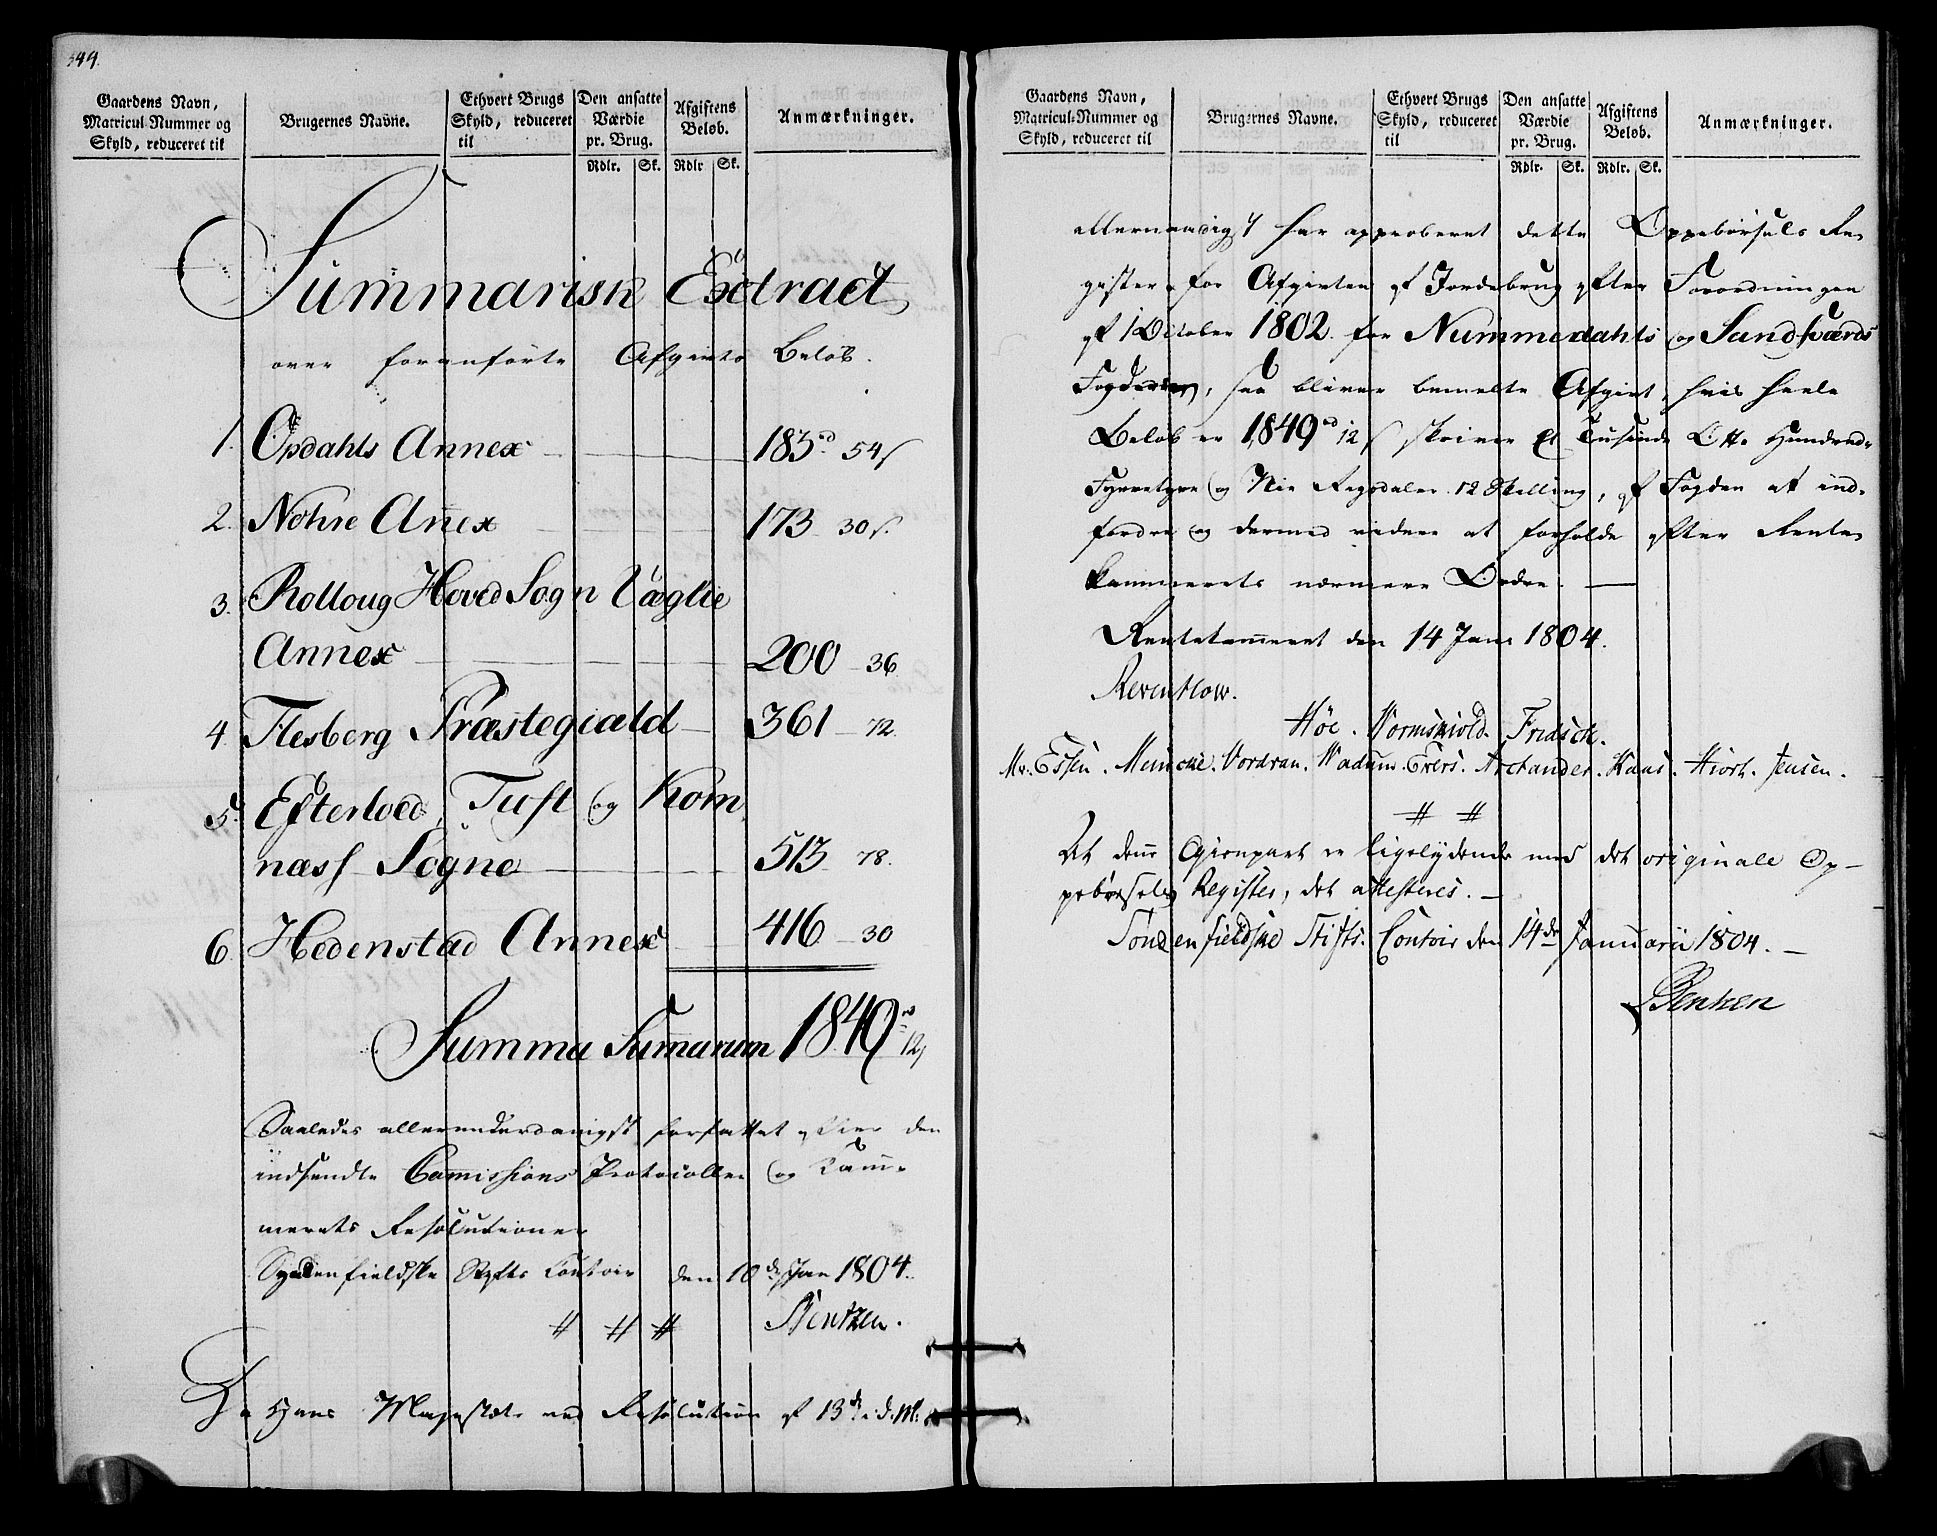 Gaardens Navn,
Matricul-Nummer og
Skyld, reduceret til
Brugernes Navne.
Ethvert Brugs
Skyld, reduceret
til
Den ansatte
Værdie
pr. Brug.
Rdlr. Sk.
Afgiftens
Beløb.
Rdlr Sk.
Anmærkninger.
Summarisk Extract
over foranførte Afgivts Beløb.
1. Opdahls Annex 183rd 54s
2. Nohre Annex 173 30s.
3. Rolloug Hoved Sogn Væglie
Annex 200 36
4. Flesberg Præstegiæld 361 72.
5. Efterløed, Tuft og Kom
næss Sogne 513 78.
6. Hedenstad Annex 416 30
Summa Sumarum 1849rd 12s
Saaledes allerunderdanigst forfattet efter den
indsendte Commissions Protocoller og Kam-
merets Resolutioner
Syndenfieldske Stifts Contoir den 10de Jan 1804.
# # # Bentzen.
Da Hans Majestæt ved Resolution af 13de i d. M.
Gaardens Navn,
Matricul-Nummer og
Skyld, reduceret til
Brugernes Navne.
Ethvert Brugs
Skyld, reduceret
til
Den ansatte
Værdie
pr. Brug.
Rdlr. Sk.
Afgiftens
Beløb.
Rdlr. Sk.
Anmærkninger.
allernaadigst har approberet dette Oppebørsels Re-
gister for Afgivten af Jordebrug efter Forordningen
af 1 October 1802. for Nummedahls og Sandsværds
Fogderie, saa bliver bemelte Afgivt, hvis heele
Beløb er 1849rd 12s skriver Et Tusinde Otte Hundrede
Fyrretyve og Nie Rigsdaler 12 Skilling, af Fogden at ind-
fordre og dermed videre at forholde efter Rente-
kammerets nærmere Ordre.
Rentekammeret den 14 Jan 1804.
Reventlow.
Høe. Wormskiold. Fridsch.
Mr. Essen. Meincke. Vordran. Wadum. Evers. Archander. Kaas. Hiort. Jensen.
# #
At denne Gienpart er ligelydende med det originale Op-
pebørsels Register, det attesteres.
Søndenfieldske Stifts Contoir den 14de Januarii 1804.
Bentzen